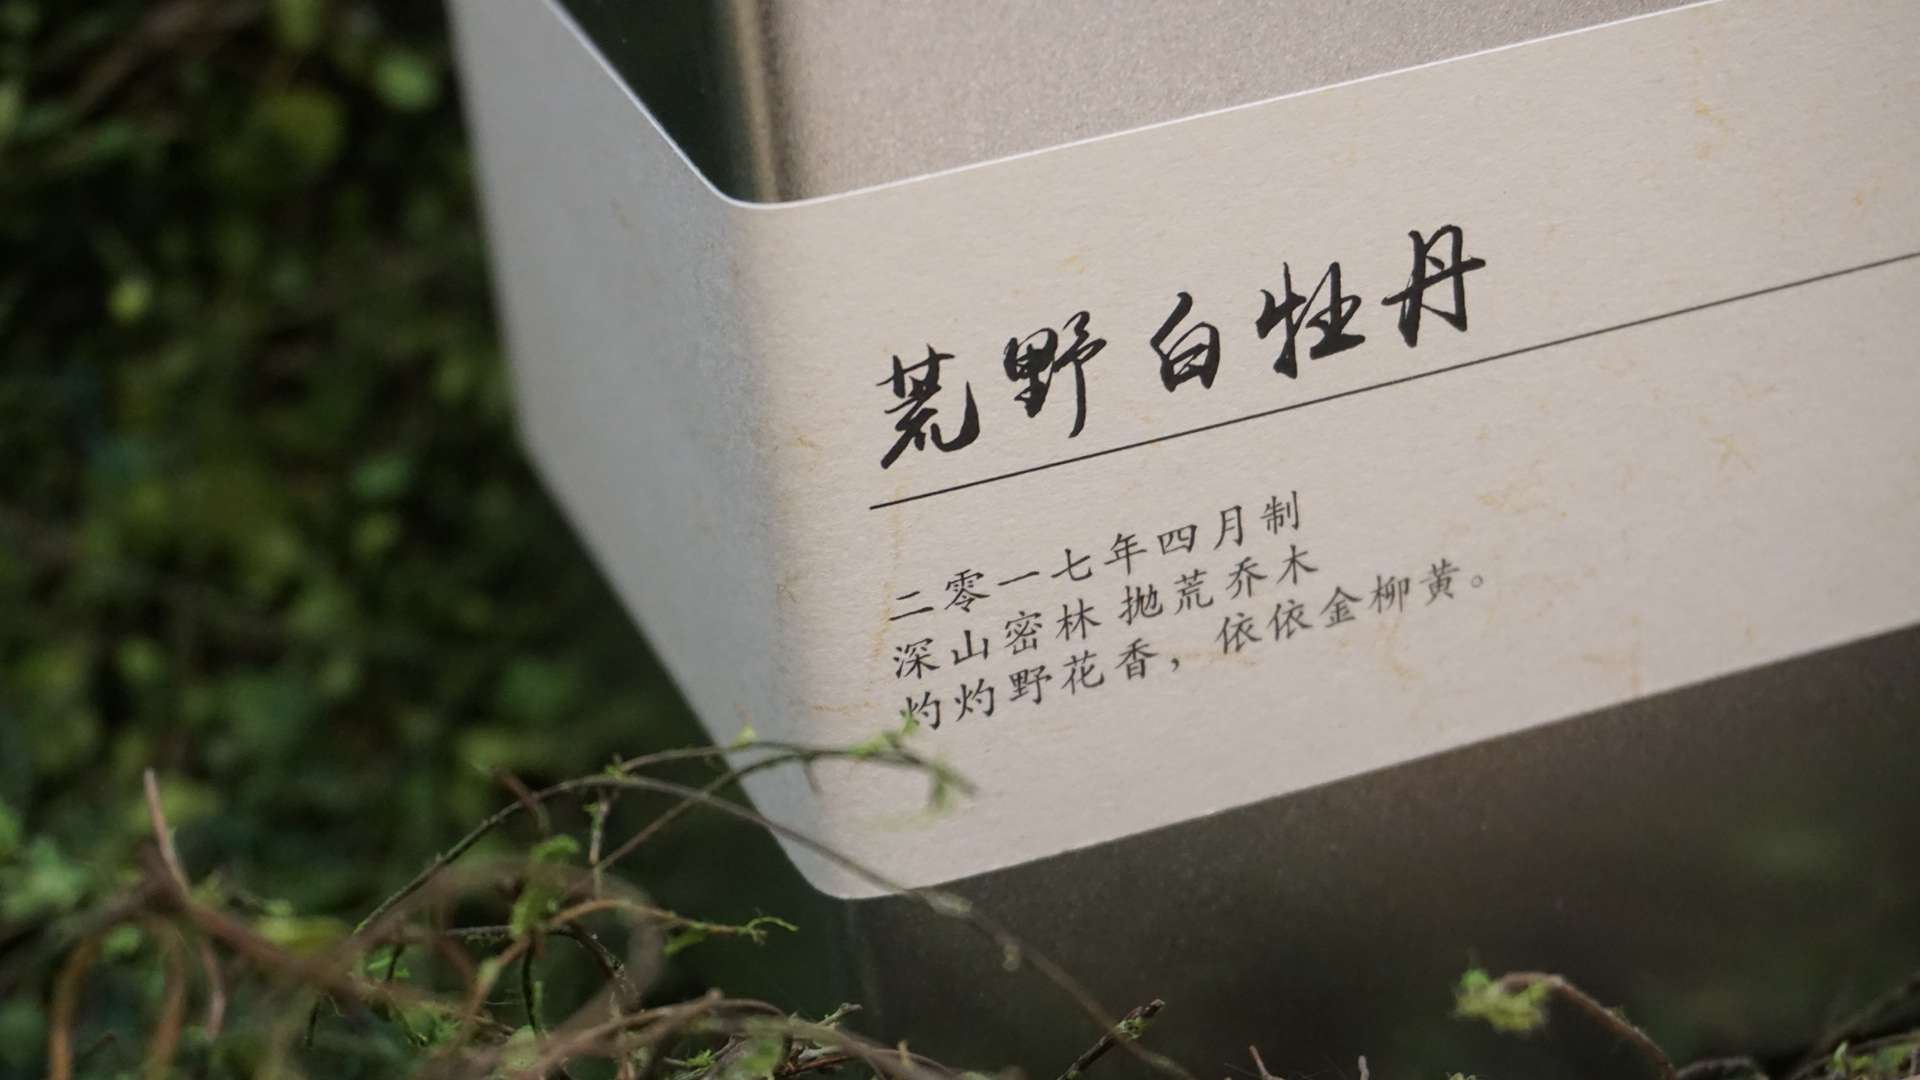 荒野白牡丹
二零一七年四月制
深山密林 抛荒乔木
灼灼野花香，依依金柳黄。